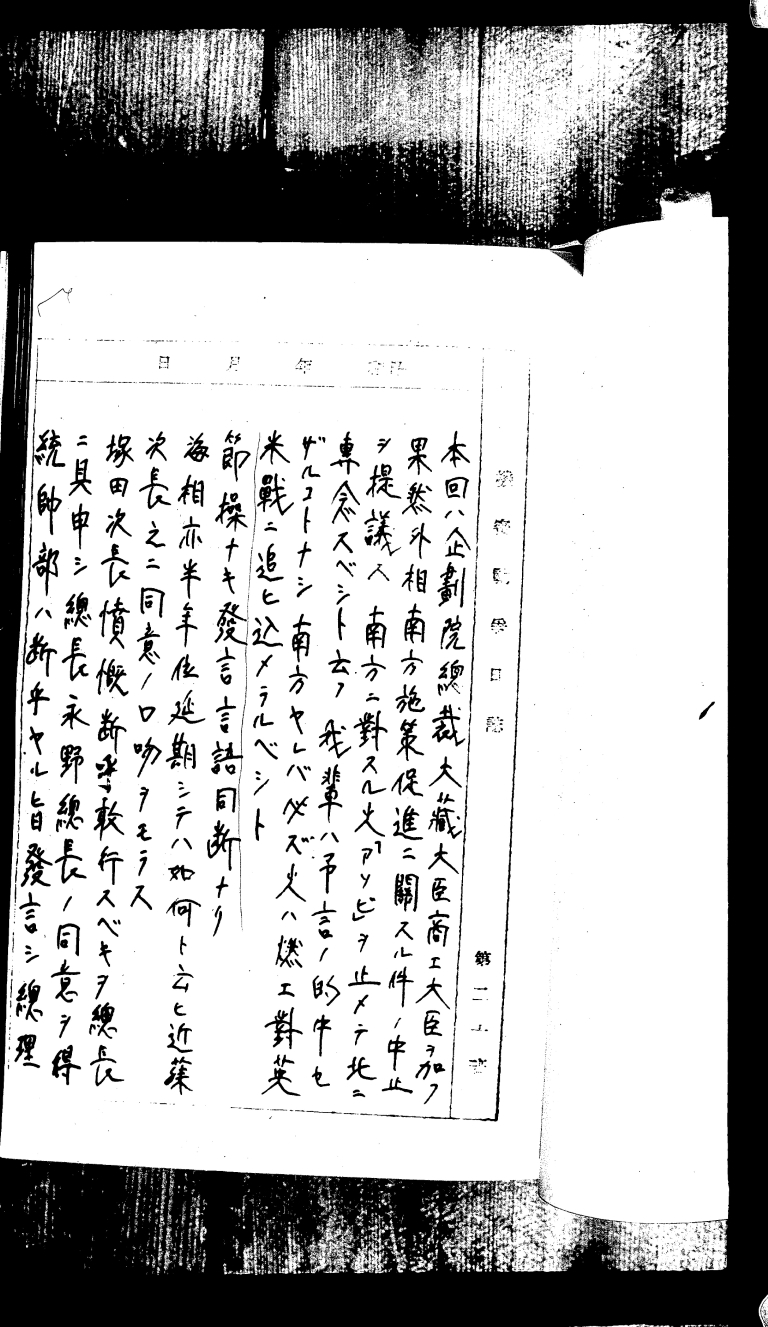 機密戰爭日誌
第二十班
昭和 年 月 日
本回ハ企劃院總裁大藏大臣商工大臣ヲ加フ
果然外相南方施策促進ニ關スル件ノ中止
ヲ提議ス 南方ニ對スル火「アソビ」ヲ止メテ北ニ
專念スベシト云フ 我輩ハ予言ノ的中セ
ザルコトナシ南方ヤレバ必ズ火ハ燃エ對英
米戰ニ追ヒ込メラルベシト
節操ナキ發言言語同断ナリ
海相亦半年位延期シテハ如何ト云ヒ近藤
次長之ニ同意ノ口吻ヲモラス
塚田次長憤慨断乎敢行スベキヲ總長
ニ具申シ總長永野總長ノ同意ヲ得
統帥部ハ断乎ヤル旨發言シ總理